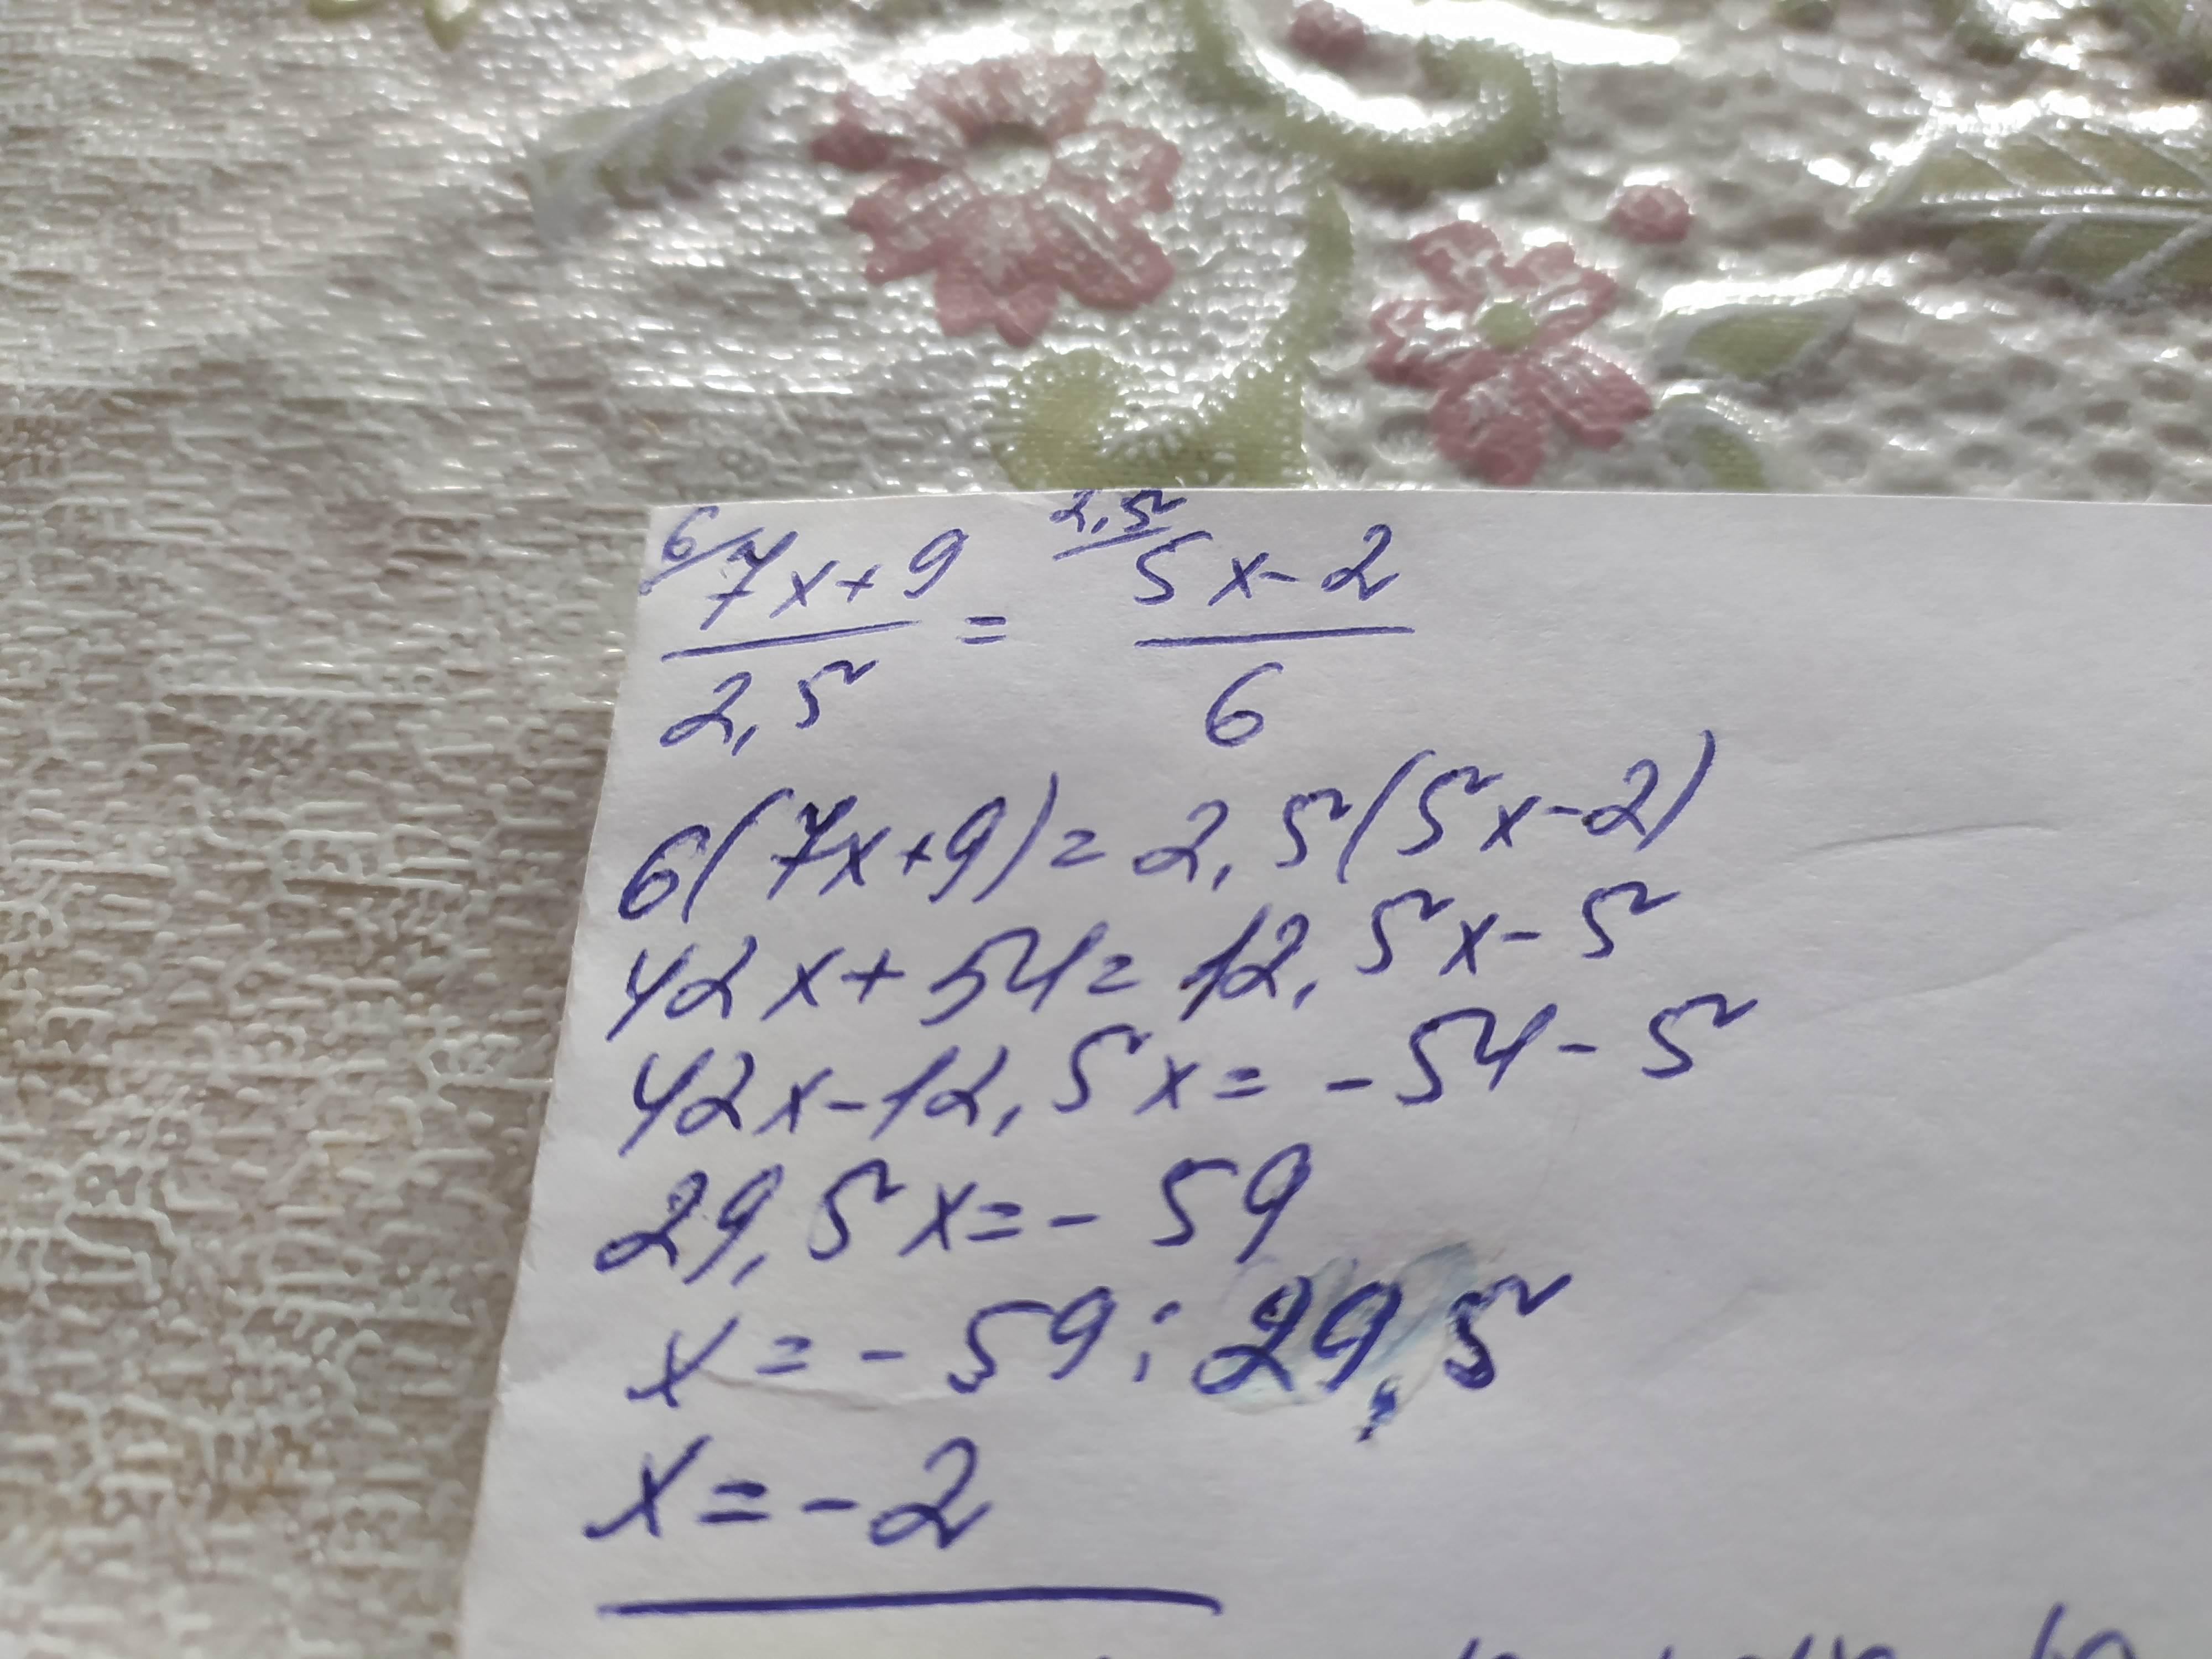 6/ 7x+9 = 2,5/ 5x-2
2,5 6
6(7x+9)=2,5(5x-2)
42x+54=12,5x-5
42x-12,5x=-54-5
29,5x=-59
x=-59:29,5
x=-2